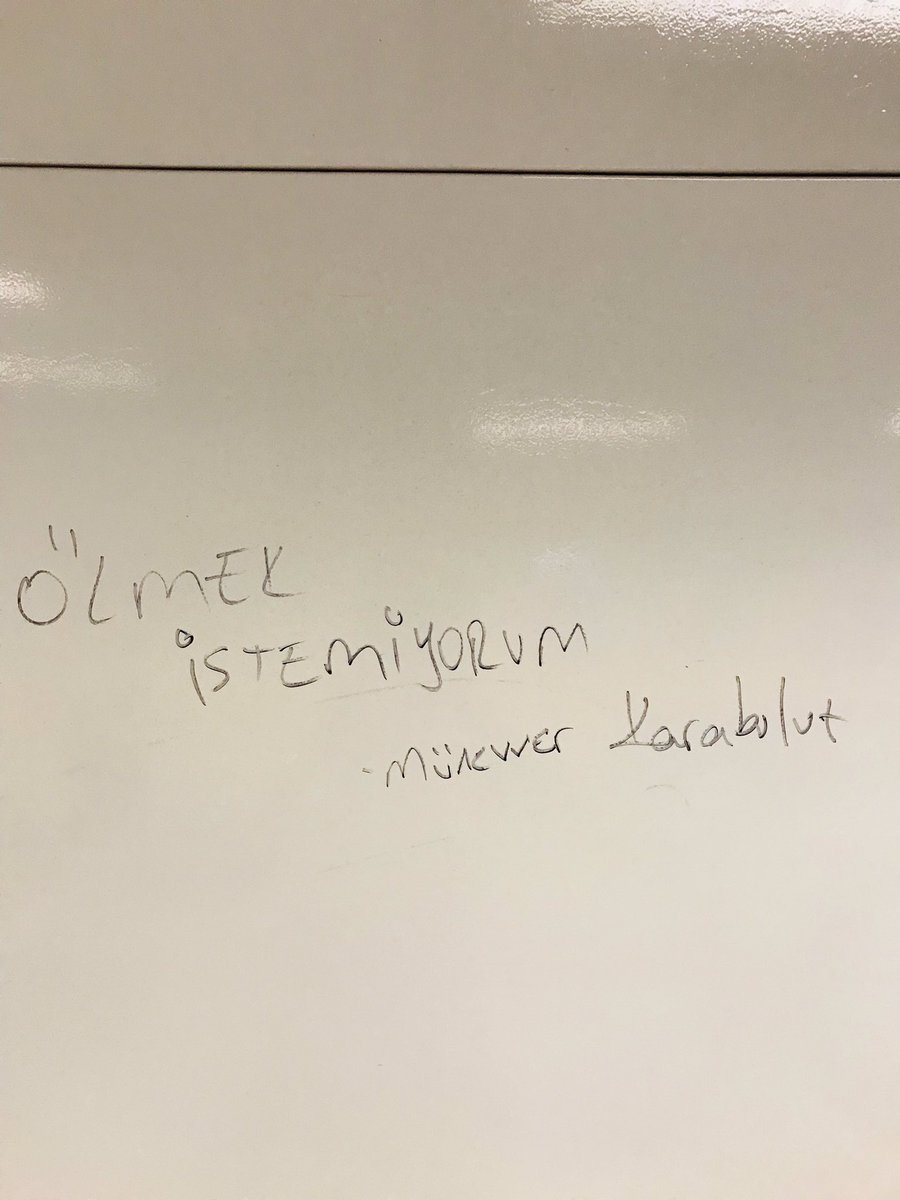 ÖLMEK
İSTEMİYORUM
-Münevver Karabulut